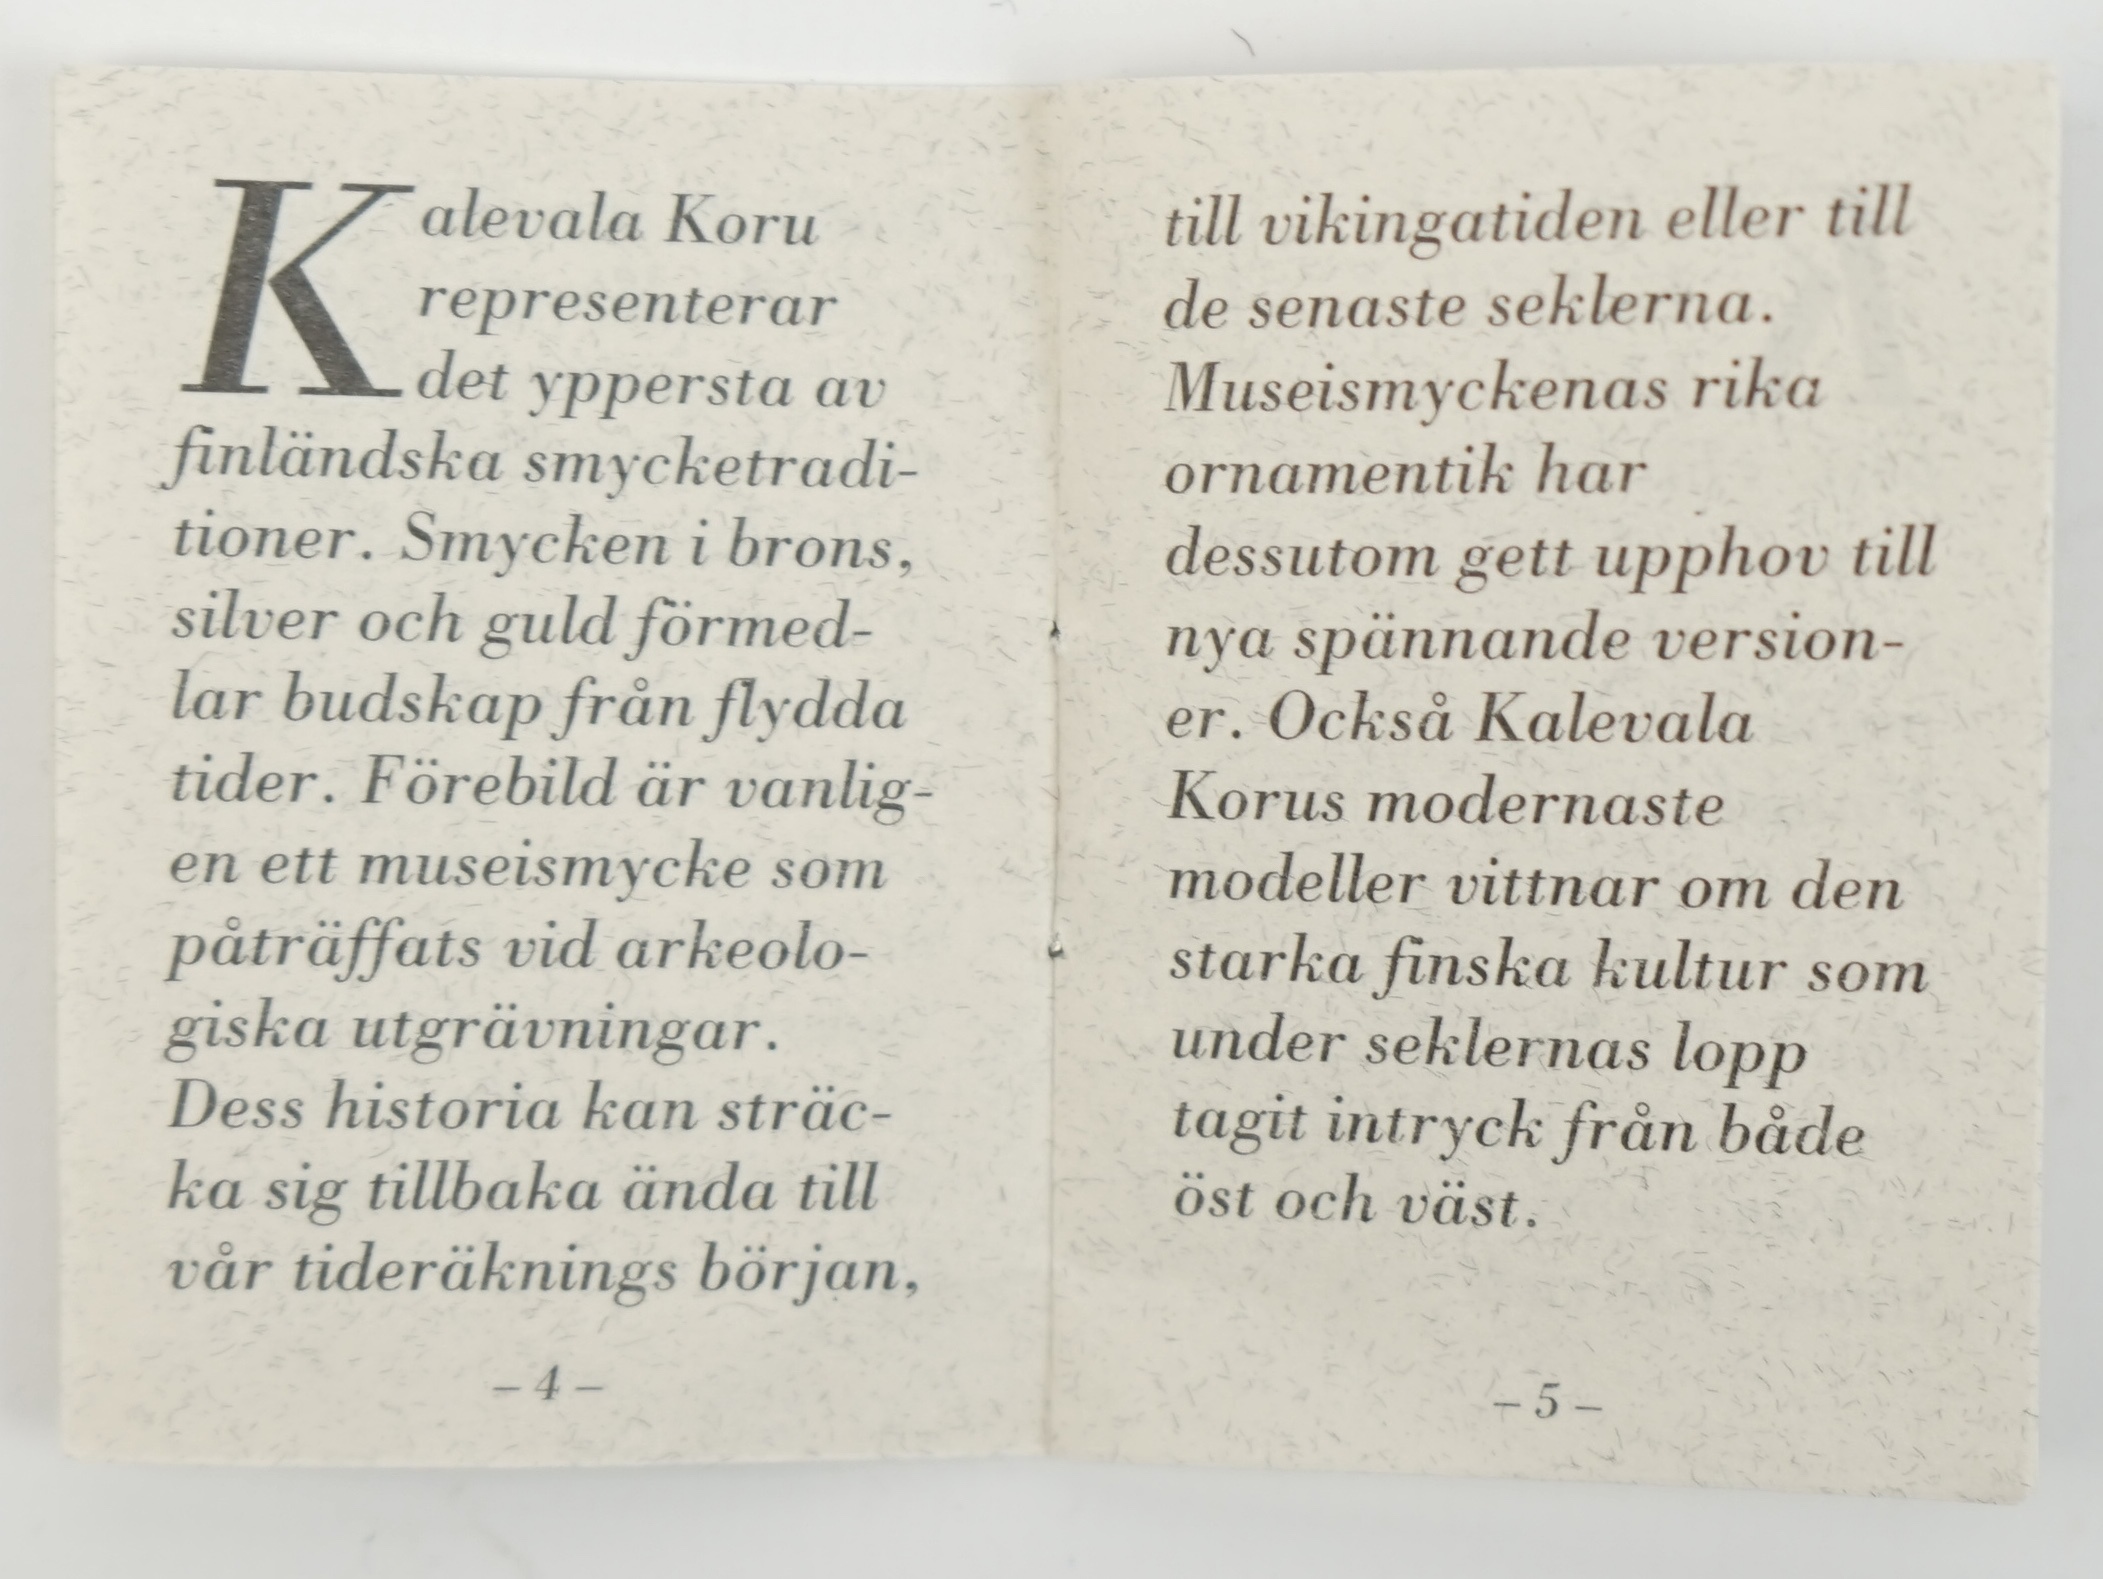 Kalevala Koru
representerar
det yppersta av
finländska smycketradi-
tioner. Smycken i brons,
silver och guld förmed-
lar budskap från flydda
tider. Förebild är vanlig-
en ett museismycke som
påträffats vid arkeolo-
giska utgrävningar.
Dess historia kan sträc-
ka sig tillbaka ända till
vår tideräknings början,
– 4 –
till vikingatiden eller till
de senaste seklerna.
Museismyckenas rika
ornamentik har
dessutom gett upphov till
nya spännande version-
er. Också Kalevala
Korus modernaste
modeller vittnar om den
starka finska kultur som
under seklernas lopp
tagit intryck från både
öst och väst.
– 5 –